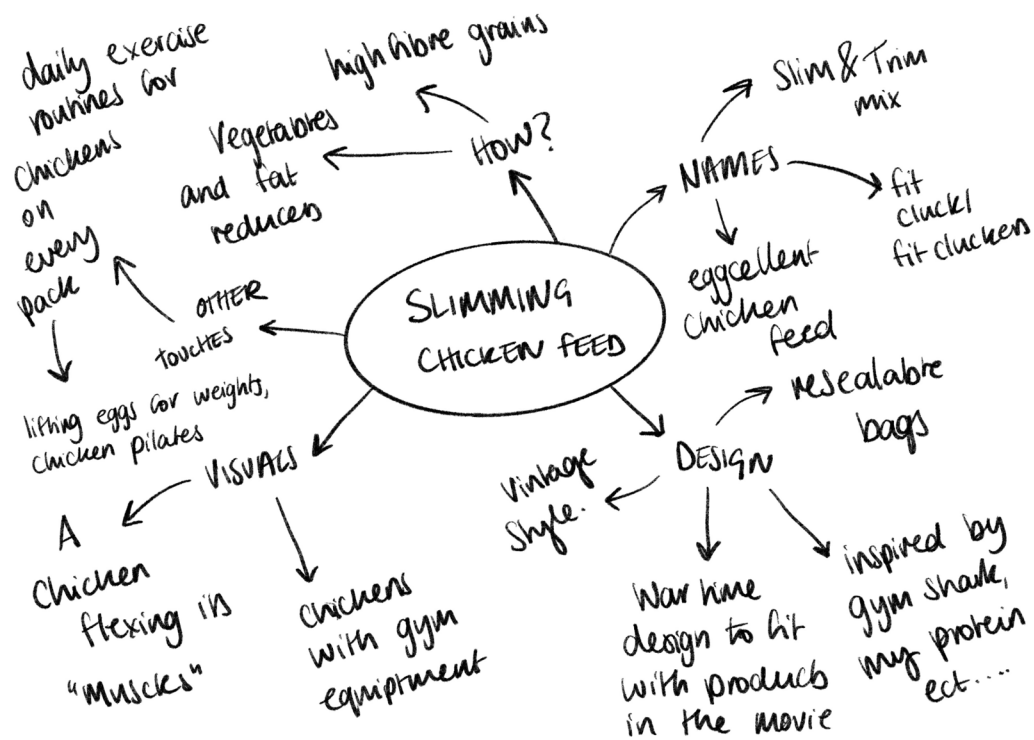 SLIMMING
CHICKEN FEED
HOW?
high fibre grains
Vegetables
and fat
reducers
NAMES
Slim & Trim
mix
fit
cluck/
fit cluckers
eggcellent
chicken
feed
DESIGN
resealable
bags
inspired by
gym shark,
my protein
ect....
War time
design to fit
with products
in the movie
vintage
style.
VISUALS
A
Chicken
flexing its
"muscles"
chickens
with gym
equiptment
OTHER
TOUCHES
daily exercise
routines for
chickens
on
every
pack
lifting eggs for weights,
chicken pilates